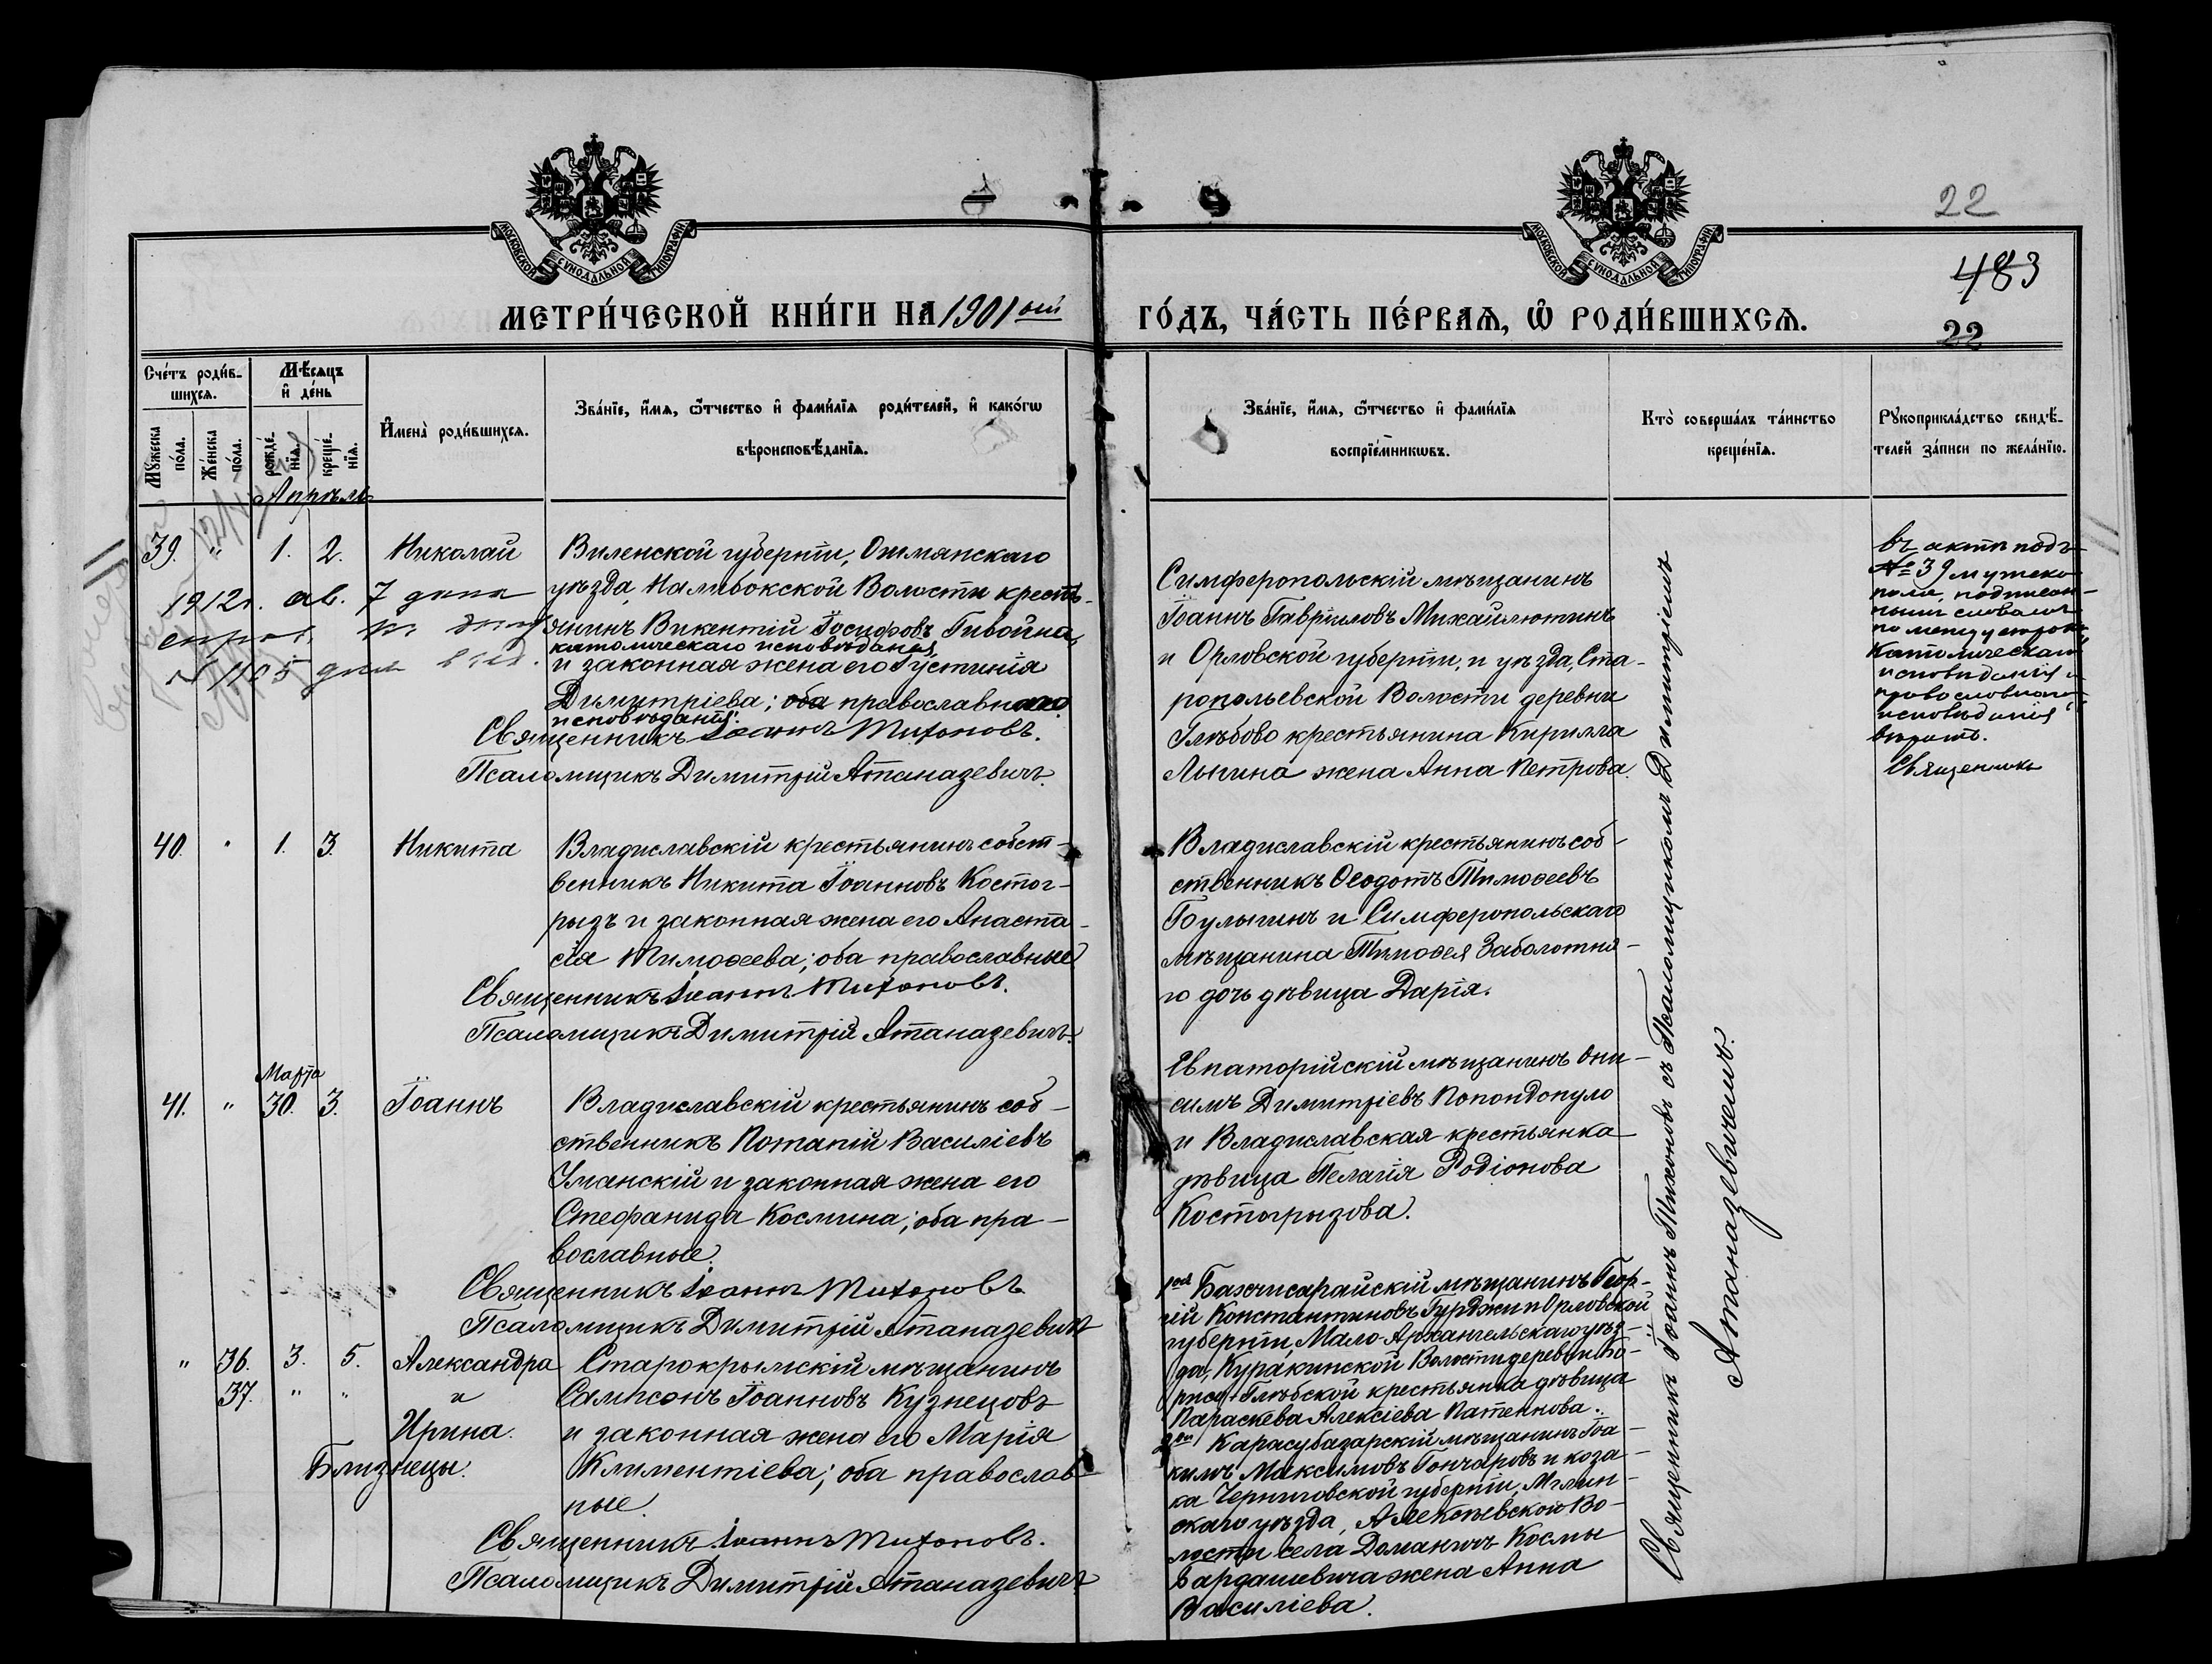 22
483
22
МОСКОВСКОЙ СУНОДАЛЬНОЙ ТИПОГРАФІИ
МОСКОВСКОЙ СУНОДАЛЬНОЙ ТИПОГРАФІИ
МЕТРИ́ЧЕСКОЙ КНИ́ГИ НА 1901ый ГО́ДЪ, ЧА́СТЬ ПЕ́РВАѦ, Ѡ҆ РОДИ́ВШИХСѦ.
Сче́тъ роди́в-
шихсѧ.
Мꙋжеска
по́ла.
Же́нска
по́ла.
Мѣ́сѧцъ
и҆ де́нь
рожде́-
нїѧ.
креще́-
нїѧ.
И҆мена̀ роди́вшихсѧ.
Зва́нїе, и҆́мѧ, ѻ҆́тчество и҆ фами́лїѧ роди́телей, и҆ како́гѡ
вѣроисповѣ́данїѧ.
Зва́нїе, и҆́мѧ, ѻ҆́тчество и҆ фами́лїѧ
воспрїе́мникѡвъ.
Кто̀ соверша́лъ та́инство
креще́нїѧ.
Рꙋкоприкла́дство свидѣ́-
телей за́писи по жела́нїю.
Апрѣль
39. " 1. 2. Николай
Виленской губерніи, Ошмянскаго
уѣзда, Налибокской Волости кресть-
янинъ Викентій Іосифовъ Гивойна,
католическаго исповѣданія,
и законная жена его Іустинія
Димитріева; оба православнаго
исповѣданія.
Священникъ Іоаннъ Тихоновъ.
Псаломщикъ Димитрій Атаназевичъ.
1912г. ав. 7 дня
Симферопольскій мѣщанинъ
Іоаннъ Гавріиловъ Михайлютинъ
и Орловской губерніи, и уѣзда, Ста-
ропольевской Волости деревни
Глѣбово крестьянина Кирилла
Лыгина жена Анна Петрова.
Въ актѣ подъ
№ 39 мужеска
пола, подписан-
ными словами
по между строкъ
Католическаго
исповѣданія и
православнаго
исповѣданія
вѣрить.
Священникъ
40. " 1. 3. Никита
Владиславскій крестьянинъ собст-
венникъ Никита Іоанновъ Костог-
рызъ и законная жена его Анаста-
сія Тимоѳеева; оба православные
Священникъ Іоаннъ Тихоновъ.
Псаломщикъ Димитрій Атаназевичъ.
Владиславскій крестьянинъ соб-
ственникъ Ѳеодотъ Тимоѳеевъ
Гоулыгинъ и Симферопольскаго
мѣщанина Тимоѳея Заболотна-
го дочь дѣвица Дарія.
Марта
41. " 30. 3. Іоаннъ
Владиславскій крестьянинъ соб-
ственникъ Потапій Василіевъ
Уманскій и законная жена его
Стефанида Космина; оба пра-
вославные.
Священникъ Іоаннъ Тихоновъ
Псаломщикъ Димитрій Атаназевичъ
Евпаторійскій мѣщанинъ Они-
симъ Димитріевъ Попондопуло
и Владиславская крестьянка
дѣвица Пелагія Родіонова
Костогрызова.
" 36. 3. 5. Александра
37. " " и
Ирина.
Близнецы.
Старокрымскій мѣщанинъ
Сампсонъ Іоанновъ Кузнецовъ
и законная жена его Марія
Климентіева; оба православ-
ные.
Священникъ Іоаннъ Тихоновъ.
Псаломщикъ Димитрій Атаназевичъ
1ой Бахчисарайскій мѣщанинъ Геор-
гій Константиновъ Гурджи и Орловской
губерніи, Мало-Архангельскаго уѣз-
да, Куракинской Волости деревни Бо-
рисо-Глѣбской крестьянка дѣвица
Параскева Алексіева Патенкова.
2ой Карасубазарскій мѣщанинъ Іоа-
кимъ Максимовъ Гончаровъ и коза-
ка Черниговской губерніи, Мглин-
скаго уѣзда, Алексѣевской Во-
лости села Доманичъ Космы
Бардашевича жена Анна
Василіева.
Священникъ Іоаннъ Тихоновъ съ Псаломщикомъ Димитріемъ
Атаназевичемъ.